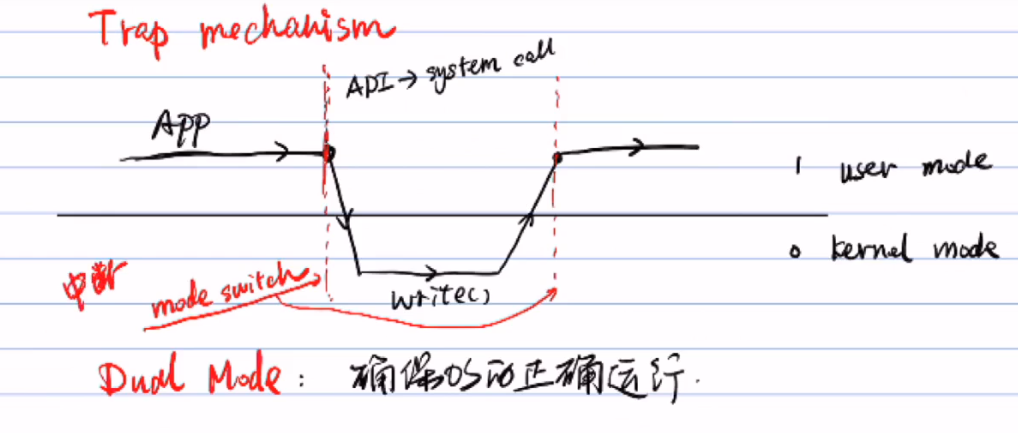 Trap mechanism
API → system call
App
1 user mode
0 kernel mode
中断
mode switch
write()
Dual Mode: 确保OS的正确运行.